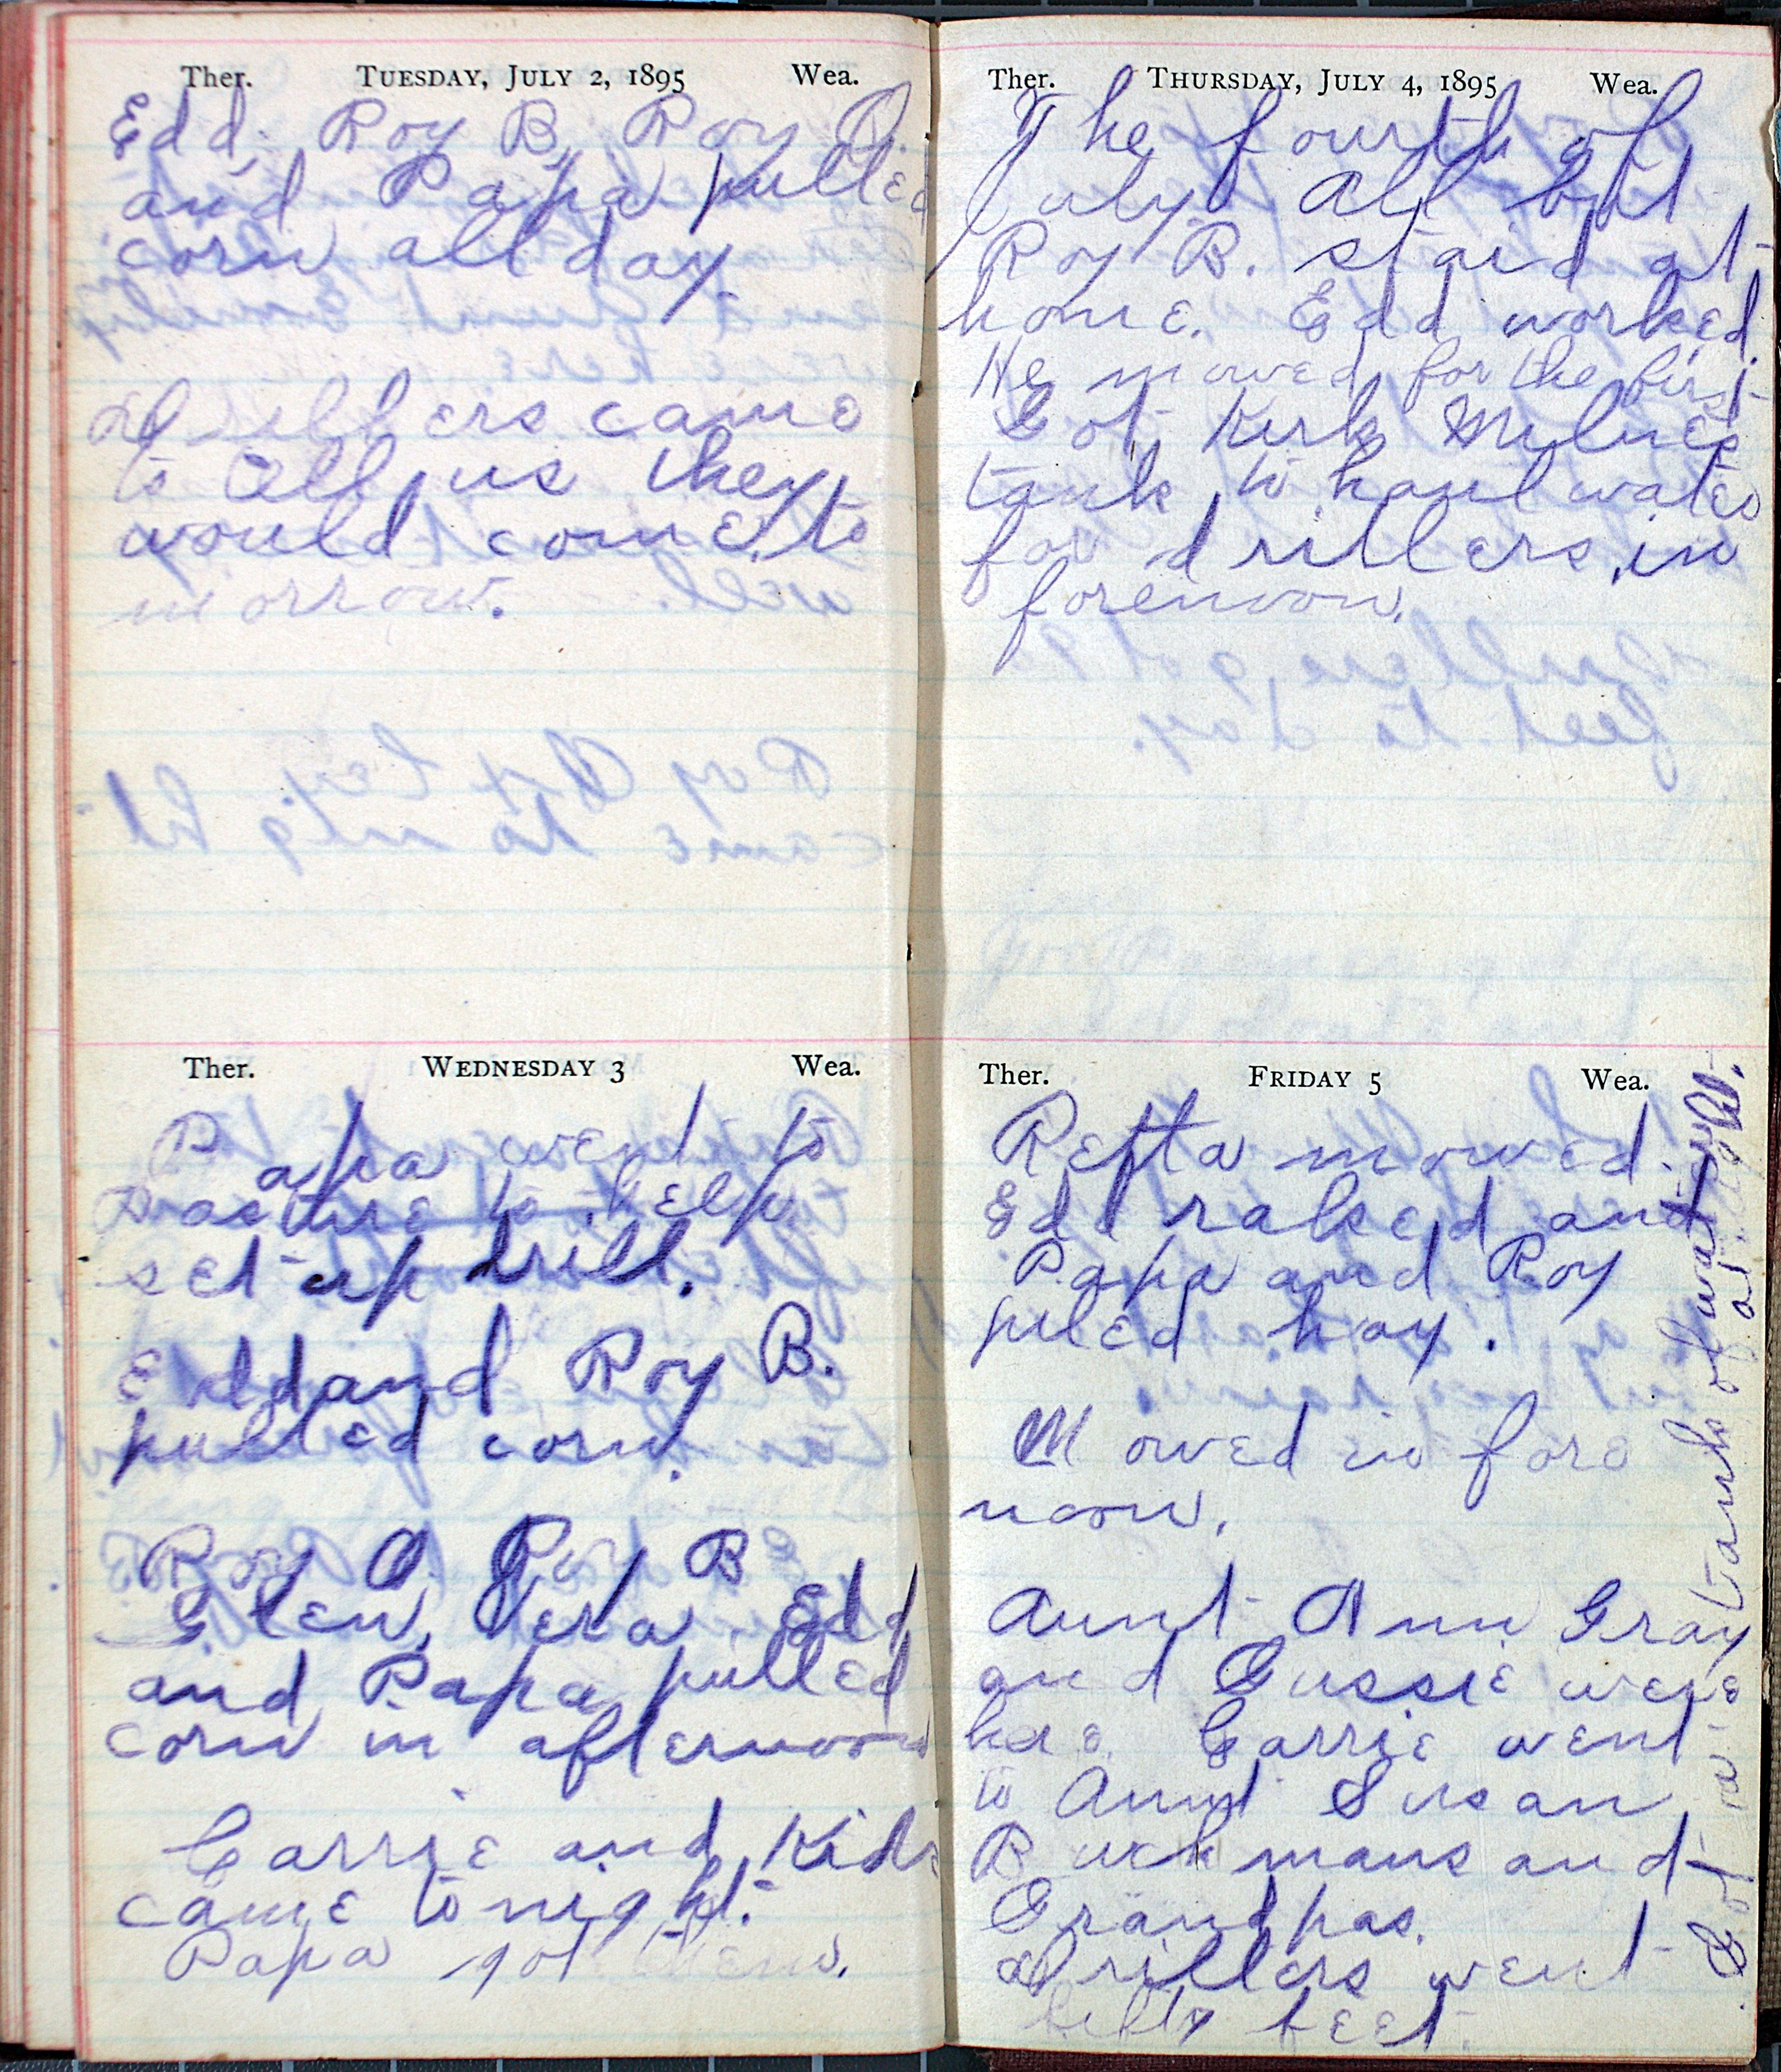 Ther. TUESDAY, JULY 2, 1895 Wea.
Edd, Roy B, Roy O.
and Papa pulled
corn all day.
Drillers came
to tell us they
would come to
morrow.
Ther. WEDNESDAY 3 Wea.
Papa went to
Pasture to help
set up drill.
Edd and Roy B.
pulled corn.
Roy O. Roy B
Glen, Vera, Edd
and Papa pulled
corn in afternoon
Carrie and Kids
came to night.
Papa got them.
Ther. THURSDAY, JULY 4, 1895 Wea.
The fourth of
July. All but
Roy B. staid at
home. Edd worked.
He mowed for the first
Got Kirk
tank to haul water
for drillers in
forenoon.
Ther. FRIDAY 5 Wea.
Retta mowed.
Edd raked and
Papa and Roy
piled hay.
Mowed in fore
noon.
Aunt Ann Gray
and Gussie were
here. Carrie went
to Aunt Susan
Buckmans and
Grandpas.
Drillers went
fifty feet.
Got a tank of water
at